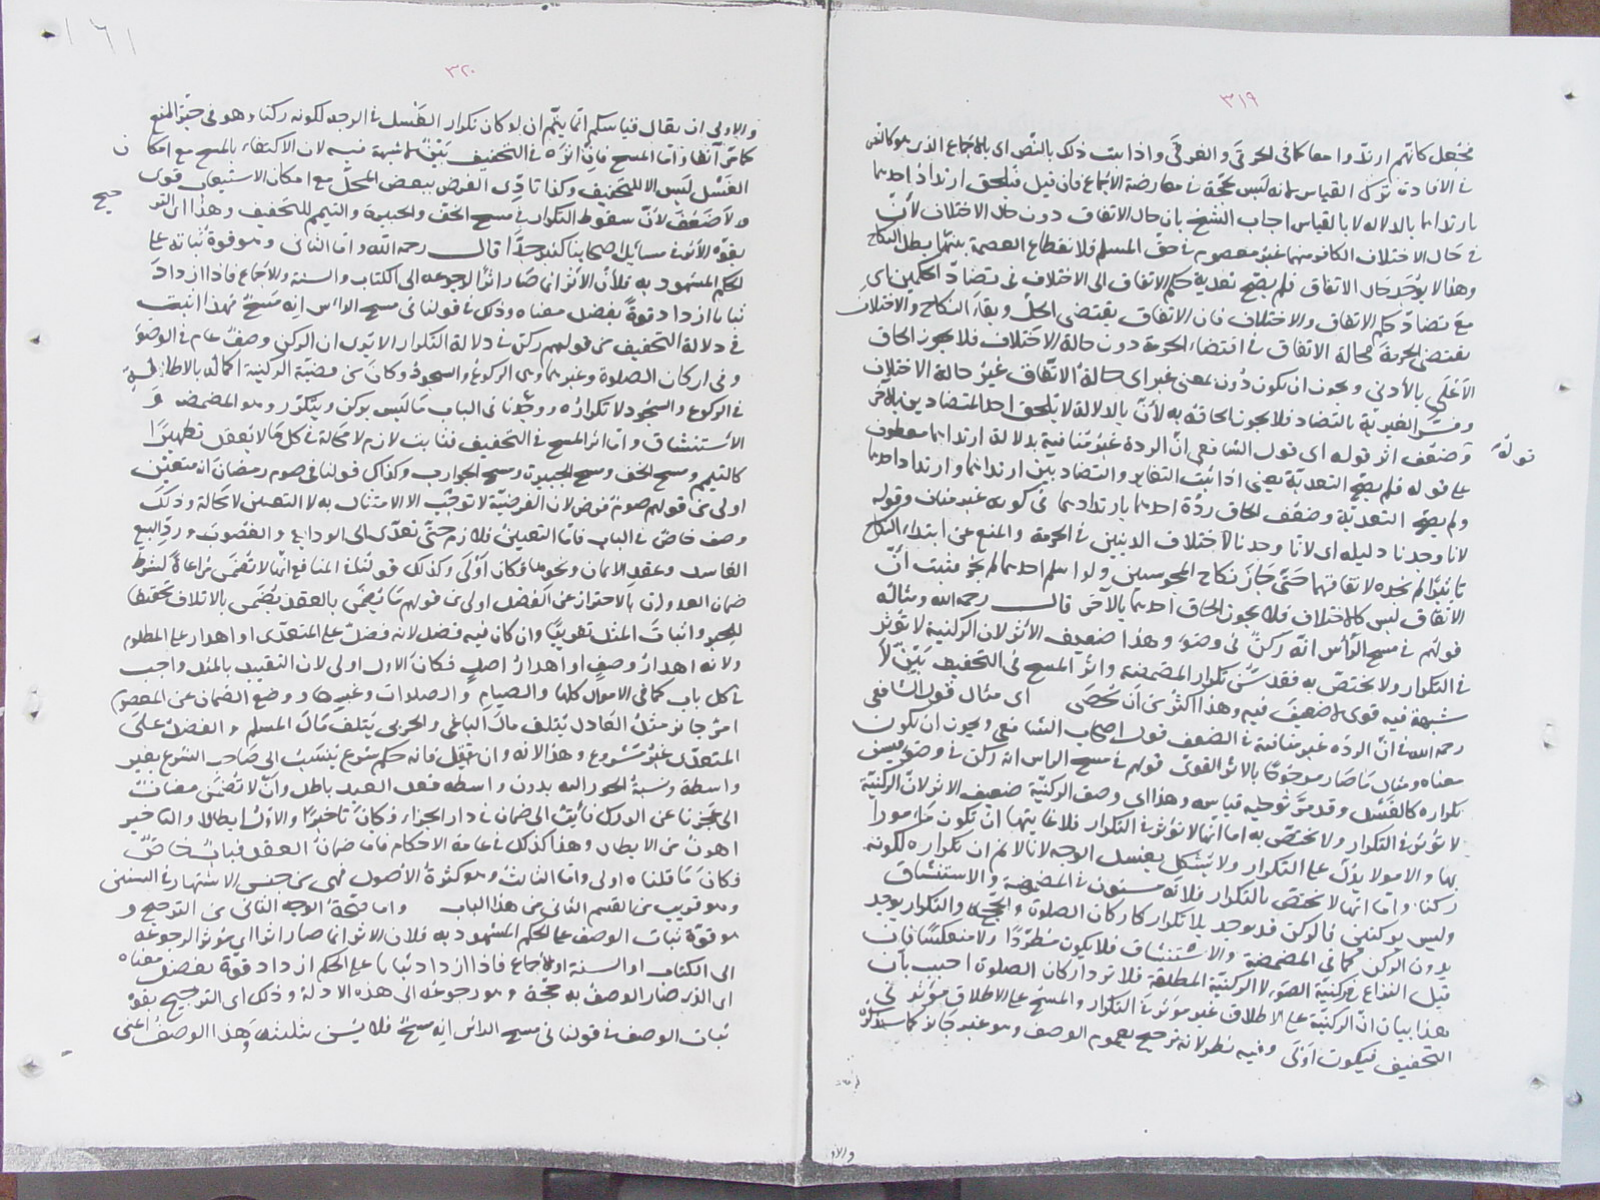 ٣١٩
فجعل كأنهم ارتدوا معا كما في الحرقى والغرقى واذا ثبت ذلك بالنص اى بالاجماع الذى هو كالنص
في الافادة ترك القياس لانه ليس بحجة في معارضة الاجماع فان قيل فيلحق ارتداد احدهما
بارتدادهما بالدلالة لا بالقياس اجاب الشيخ بان حال الاتفاق دون حال الاختلاف لأنّ
في حال الاختلاف الكافر منهما غير معصوم في حق المسلم فلانقطاع العصمة بينهما يبطل النكاح
وهذا لا يُوجَد حال الاتفاق فلم يصح تعدية حكم الاتفاق الى الاختلاف في تضادّ الحكمين اى
مع تضادّ حكم الاتفاق والاختلاف فان الاتفاق يقتضى الحل وبقاء النكاح والاختلاف
يقتضى الحرمة فحالة الاتفاق في اقتضاء الحرمة دون حالة الاختلاف فلا يجوز الحاق
الاَعْلَى بالأدنى ويجوز ان يكون دون بمعنى غير اى حالة الاتّفاق غيرُ حالة الاختلاف
وفسّر الغيريّة بالتضاد فلا يجوز الحاقه به لأنّ بالدلالة لا يلحق احد المتضادين بالآخر
قولهُ وضعف اثر قوله اى قول الشافعى انّ الردة غير منافية بدلالة ارتدادهما معطوف
على قوله فلم يصح التعدية يعنى اذا ثبت التغاير والتضاد بين ارتدادهما وارتداد احدهما
ولم يصح التعديّة وضعف الحاق ردّة احدهما بارتدادهما في كونه غير مناف وقوله
لانا وجدنا دليله اى لانّا وجدنا لاختلاف الدينين في الحرمة والمنع عن ابتداء النكاح
تأثيرًا لم نجده لاتفاقهما حَتّى جَازَ نكاح المجوسيين ولو اسلم احدهما لم يجز فثبت انّ
الاتفاق ليس كالاختلاف فلا يجوز الحاق احدهما بالآخر قال رحمه الله ومثاله
قولهم في مسح الرأس انّه ركنٌ في وضوء وهذا ضعيف الاثر لان الركنية لا تؤثر
في التكرار ولا يختص به فقد سُنّ تكرار المضمضة واثر المسح في التخفيف بَيّنٌ لا
شبهة فيه قوى لا ضعيف فيه وهذا اكثر من اَن يُحْصَى اى مثال قول الشافعى
رحمه الله في انّ الردة غير منافية في الضعف قول اصحاب الشافعى ويجوز ان يكون
معناه ومثال مَا صَار مرجوحًا بالاثر القوىّ قولهم في مسح الراس انه ركن في وضوء فيسن
تكراره كالغَسْل وقد مرّ توجيه قياسه وهذا اى وصف الركنيّة ضعيف الاثر لانّ الركنيّة
لا تؤثر في التكرار ولا يختصّ به اما انها لا تؤثر في التكرار فلان غايتها ان تكون مَاْمورا
بها والامر لا يدلّ على التكرار ولا يشكل بغسل الوجه لانا لا نم ان تكراره لكونه
ركنا وامّا انها لا تختصّ بالتكرار فلانّه مسنون في المضمضة والاستنشاق
وليس بركنين فالركن قد يوجد بلا تكرار كاركان الصلوة والحجّ والتكرار يوجد
بدون الركن كما في المضمضة والاستنشاق فلا يكون مُطَّرِدًا ولا منعكسًا فان
قيل النزاع في ركنيّة الصوم لا الركنيّة المطلقة فلا ترد اركان الصلوة اجيب بانّ
هذا بيان انّ الركنيّة على الاطلاق غير مؤثرة في التكرار والمسح على الاطلاق مؤثر في
التخفيف فيكون اوْلَى وفيه نظر لانه ترجيح بعموم الوصف وهو غير جائز كما سيذكره
والاو
١٦١
٣٢٠
والاولى ان يقال قياسكم انّما يتمّ ان لو كان تكرار الغَسْل في الوجه لكونه ركنا وهو في حيّز المنع
كما مرّ آنفا وَامّا المسح فانّ اثرُه في التخفيف بَيّنٌ لا شبهة فيه لان الاكتفاء بالمسح مع امكان
الغَسْل لَيس الا للتخفيف وكذا تادّى الفرض ببعض المحلّ مع امكان الاستيعاب قوى
ولا ضعُفَ لأنّ سقوط التكرار في مسح الخف والجبيرة والتيمم للتخفيف وهذا اى الترجيح
بقوّة الأثر في مسايل اصحابنا كثير جدًّا قال رحمه الله وامّا الثانى وهو قوة ثباته على
الحكم المشهود به فلأنّ الأثر انما صَار اثرًا لرجوعه الى الكتاب والسنة والاجماع فاذا ازدادَ
ثباتا ازداد قوةً بفضل معناه وذلك في قولنا في مسح الراس انه مَسحٌ فهذا اثبت
في دلالة التخفيف من قولهم ركن في دلالة التكرار الا يُرى ان الركن وصفٌ عام في الوضوء
وفي اركان الصلوة وغيرهما وهى الركوعُ والسجودُ وكان من قضيّة الركنية اكمالُه بالاطالة
في الركوع والسجود لا تكراره ووجدنا في الباب مَا ليس بركن ويتكرّر وهو المضمضة وَ
الاستنشاق وامّا اثر المسح في التخفيف فثابت لازم لا محالة في كل مَا لا يعقل تطهيرًا
كالتيمم ومسح الخف ومسح الجبيرة ومسح الجوارب وكذلك قولنا في صوم رمضان انه متعيّن
اولى من قولهم صوم فرض لان الفرضيّة لا توجب الا الامتثال به لا التعيين لا محالة وذلك
وصف خاصّ في الباب فامّا التعيين فلازم حتّى تعدّى الى الودايع والغصوب وردّ البيع
الفاسد وعقد الايمان ونحوها فكان اَوْلَى وكذلك قولنا في المنافع انّها لا تُضمَن مُراعاةً لشرط
ضمان العدوان بالاحتراز عن الفضل اولى من قولهم مَا يُضمَن بالعقد يضمن بالاتلاف تحقيقا
للجبر واثبات المثل تقريبًا وان كان فيه فضل لانه فضلٌ على المتعدّى او اهدار على المظلوم
ولانه اهدارُ وصفٍ او اهدارُ اصلٍ فكان الاول اولى لان التقييد بالمثل واجب
في كل باب كما في الاموال كلها والصيام والصلوات وغيرها ووضع الضمان عن المعصوم
امرٌ جائز مثل العَادل يُتلف مال الباغى والحربى يَتلف مَال المسلم والفضل علَى
المتعدّى غيرُ مَشروع وهذا لانه وان قلّ فانه حكم شرع ينسب الى صاحب الشرع بغير
واسطة ونسبة الجور اليه بدون واسطة فعل العبد باطل وانْ لا تُضمَن مضافٌ
الى عَجزنا عن الدرك ثابتٌ الى ضمان في دار الجزاء فكانَ تَاخيرًا والاوّل ابطالا والتاخير
اهون من الابطال وهذا كذلك في عامة الاحكام فاما ضمانُ العقد فبابٌ خاصٌّ
فكانَ مَا قلناه اولى وامّا الثالث وهو كثرة الأصول فهى من جنس الاشتهار في السنن
وهو قريب من القسم الثانى من هذا الباب واما صحّة الوجه الثانى من الترجيح و
هو قوّة ثبات الوصف على الحكم المشهود به فلان الاثر انما صار اثرا اى مؤثرا لرجوعه
الى الكتاب او السنة او الاجماع فاذا ازداد ثباتا على الحكم ازداد قوّة بفضل معناه
اى الذى صَار الوصفُ به حجّة وهو رجوعُه الى هذه الادلة وذلك اى الترجيح بقوّة
ثبات الوصف في قولنا في مسح الراس انه مسحٌ فلا يسن تثليثه وهذا الوصف اعنى